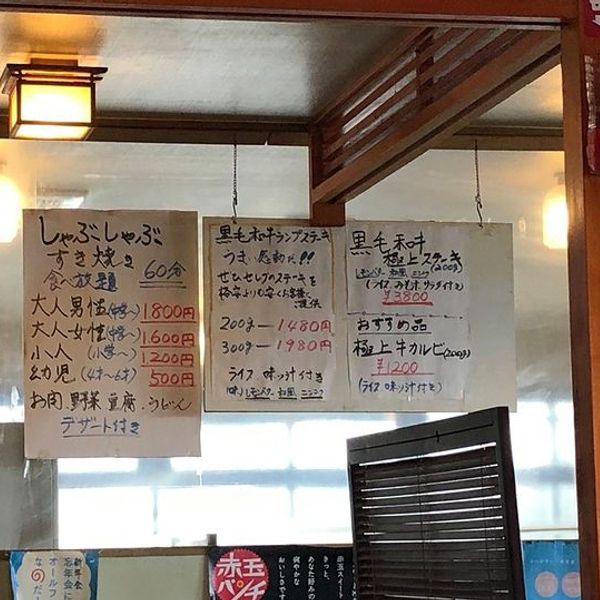 しゃぶしゃぶ
すき焼き
食べ放題 60分
大人男性(中学〜) 1.800円
大人女性(中学〜) 1.600円
小人(小学〜) 1200円
幼児(4才〜6才) 500円
お肉.野菜.豆腐.うどん
デザート付き
黒毛和牛ランプステーキ
うま、感動だ!!
ぜひセレブのステーキを
提供
200g― 1480円
300g― 1980円
ライス 味噌汁付き
黒毛和牛
極上ステーキ(200g)
¥3800
おすすめ品
極上牛カルビ(200g)
¥1200
(ライス 味噌汁付き)
新年会
忘年会に
オールフ
なのだ
赤玉
パンチ
赤玉スイート
あなた好みの
きっと、
爽やかな
おいしさです